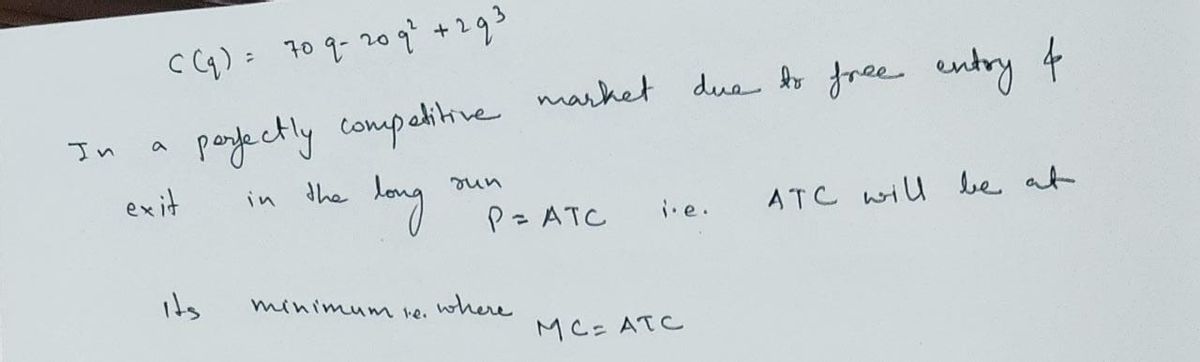 C(q) = 70q - 20q² + 2q³
In a perfectly competitive market due to free entry &
exit in the long run P = ATC i.e. ATC will be at
its minimum i.e. where MC = ATC